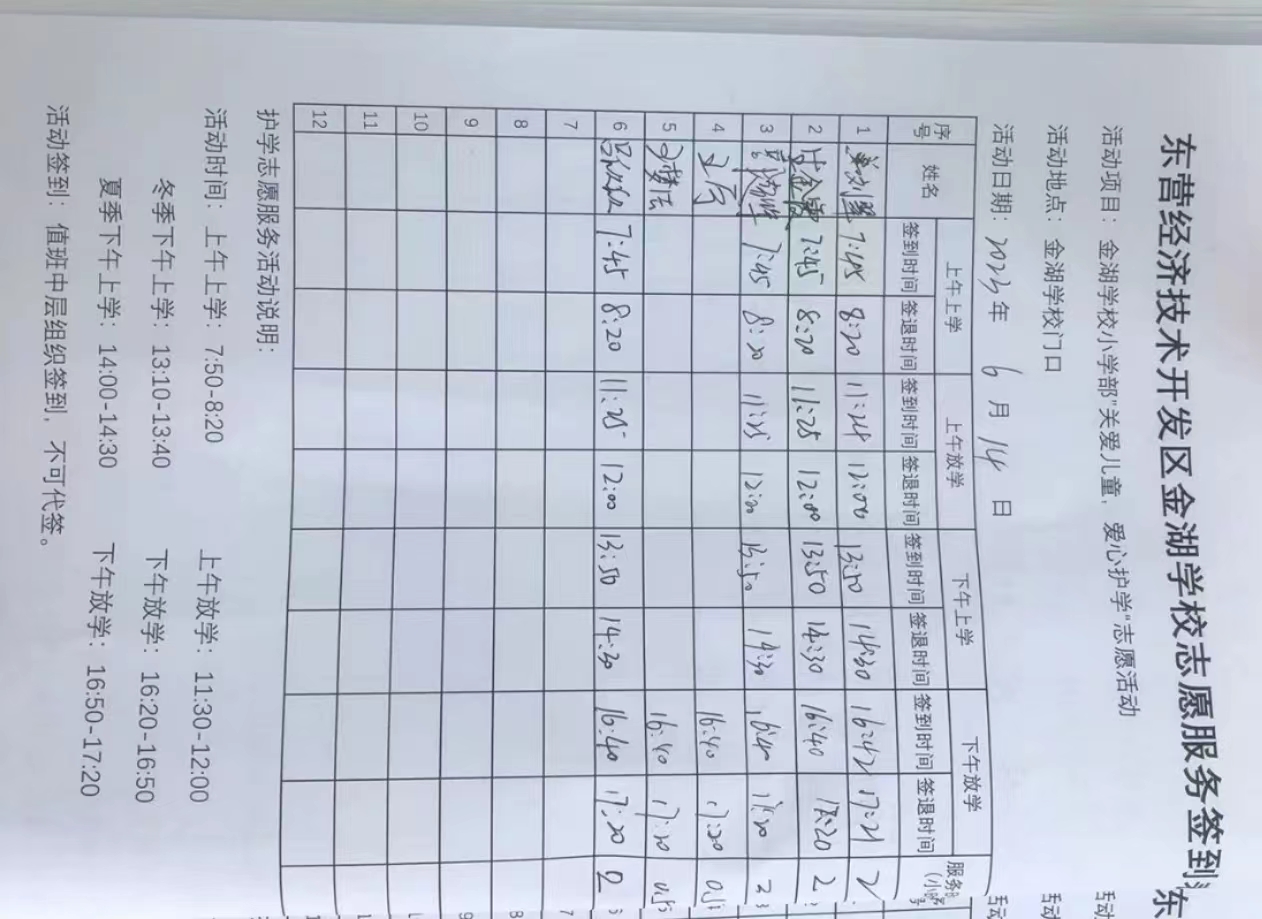 东营经济技术开发区金湖学校志愿服务签到
活动项目：金湖学校小学部"关爱儿童，爱心护学"志愿活动
活动地点：金湖学校门口
活动日期：2023年 6 月 14 日
序号 姓名 上午上学 上午放学 下午上学 下午放学 服务
签到时间 签退时间 签到时间 签退时间 签到时间 签退时间 签到时间 签退时间 (小
1 7:45 8:20 11:24 12:00 13:50 14:30 16:42 17:21 2
2 7:45 8:20 11:25 12:00 13:50 14:30 16:40 17:20 2
3 7:45 8:20 11:25 13:50 14:30 16:40 17:20 2
4 16:40 17:20 0.5
5 16:40 17:20 0.5
6 7:45 8:20 11:25 12:00 13:50 14:30 16:40 17:20 2
7
8
9
10
11
12
护学志愿服务活动说明：
活动时间：上午上学：7:50-8:20 上午放学：11:30-12:00
冬季下午上学：13:10-13:40 下午放学：16:20-16:50
夏季下午上学：14:00-14:30 下午放学：16:50-17:20
活动签到：值班中层组织签到，不可代签。